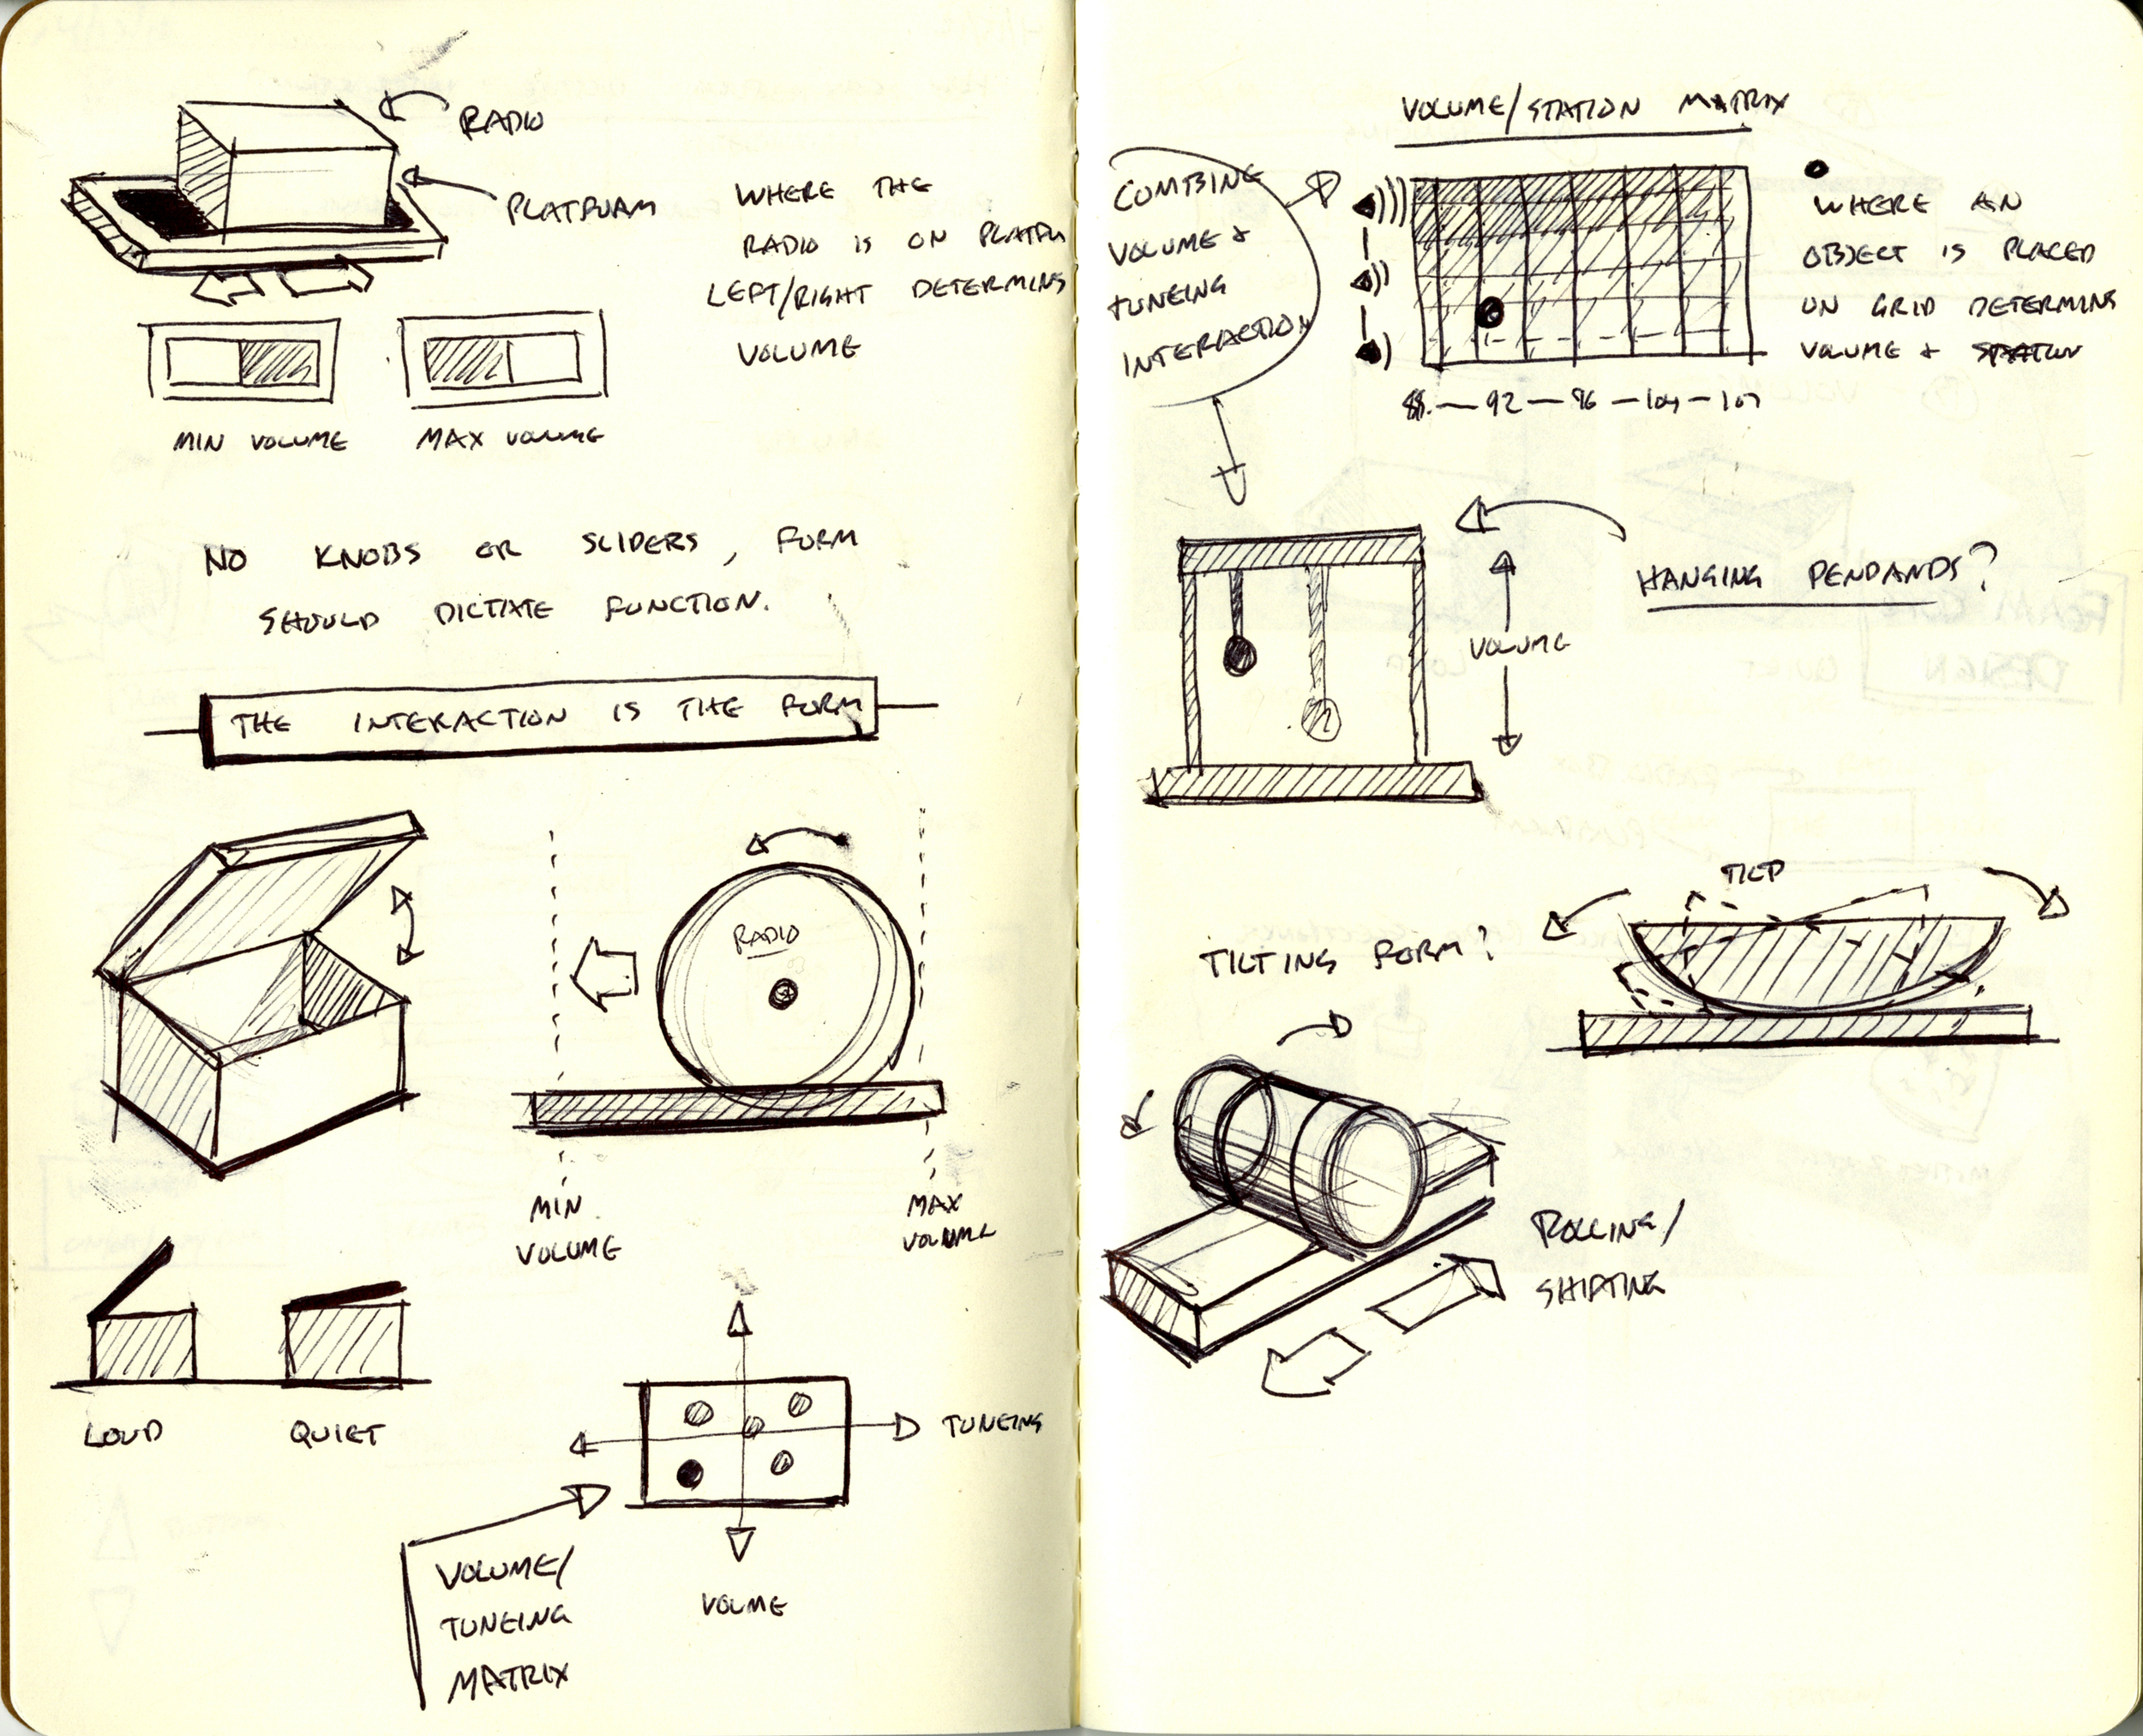 RADIO
PLATFORM
WHERE THE
RADIO IS ON PLATFO
LEFT/RIGHT DETERMINS
VOLUME
MIN VOLUME
MAX VOLUME
NO KNOBS OR SLIDERS, FORM
SHOULD DICTATE FUNCTION.
THE INTERACTION IS THE FORM
RADIO
MIN
VOLUME
MAX
VOLUME
LOUD
QUIET
TUNEING
VOLUME/
TUNEING
MATRIX
VOLME
VOLUME/STATION MATRIX
COMBING
VOLUME +
TUNEING
INTERACTION
WHERE AN
OBJECT IS PLACED
ON GRID DETERMINS
VOLUME + STATION
88 — 92 — 96 — 104 — 107
HANGING PENDANDS?
VOLUME
TILT
TILTING FORM?
ROLLING/
SHIFTING